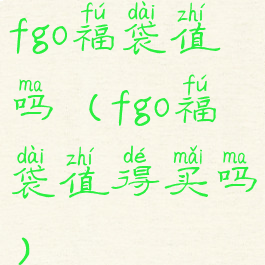 fú dài zhí
fgo福袋值
ma fú
吗（fgo福
dài zhí dé mǎi ma
袋值得买吗
）